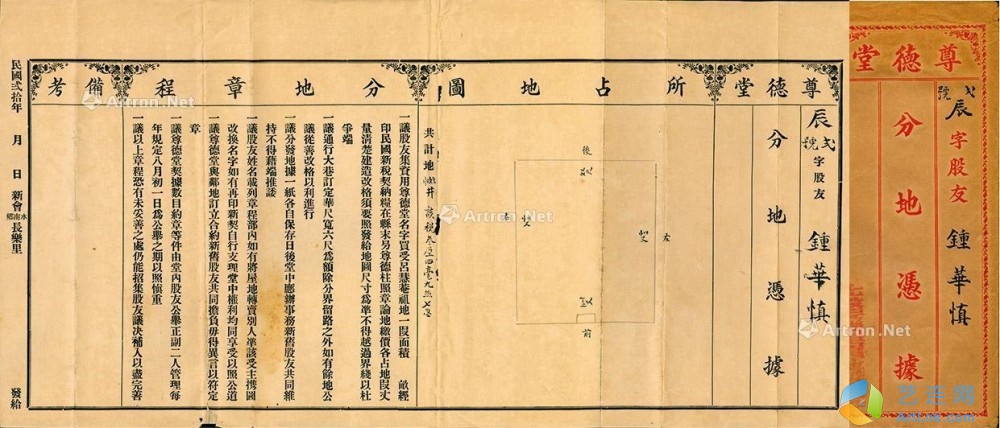 尊德堂
辰字股友 鍾華慎
號
分地憑據
尊德堂
辰字股友 鍾華慎
號
分地憑據
所占地圖
後
左
前
分地章程
共計地
一議股友集資用尊德堂名字買受呂慧菴祖地一叚面積 畝經
印民國新稅契納糧在縣末另尊德柱照章論地繳價各占地叚丈
量清楚建造改格須要照發給地圖尺寸為準不得越過界綫以杜
爭端
一議通行大巷訂定華尺寬六尺為額除分界留路之外如有餘地公
議從善改格以利進行
一議分發地據一紙各自保存日後堂中應辦事務新舊股友共同維
持不得藉端推諉
一議股友姓名載列章程部內如有將屋地轉賣別人準該受主携圖
改換名字如有再印新契自行支理堂中權利均同享受以照公道
一議尊德堂與鄰地訂立合約新舊股友共同擔負毋得異言以符定
章
一議尊德堂契據數目約章等件由堂內股友公舉正副二人管理每
年規定八月初一日為公舉之期以照慎重
一議以上章程恐有未妥善之處仍能招集股友議決補入以盡完善
備考
民國弍拾年 月 日 新會水南鄉長樂里 發給
Artron.Net
Artron.Net
Artron.Net
Artron.Net
Artron.Net
Artron.Net
艺连网